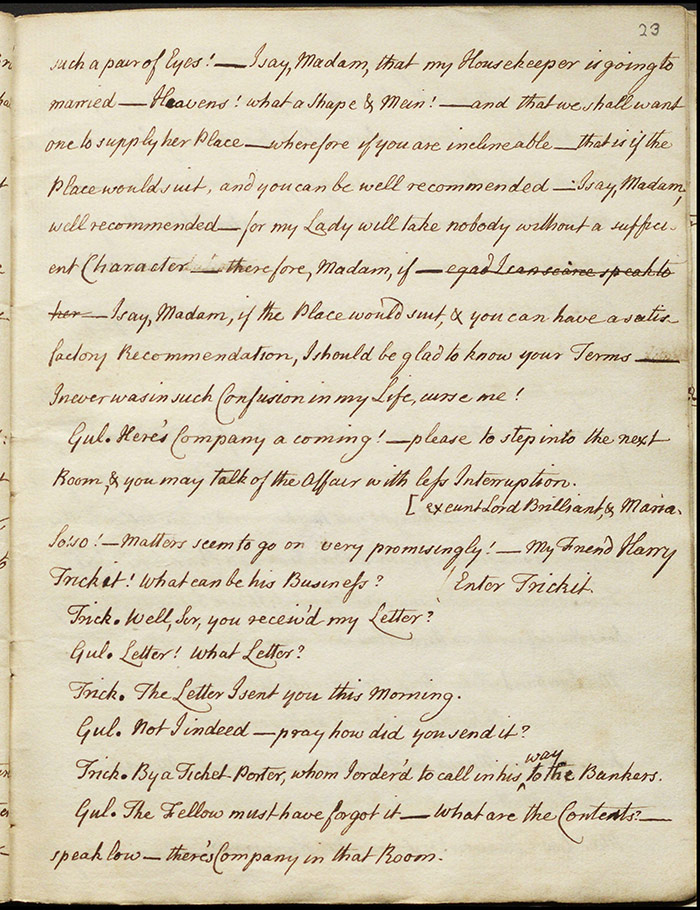 23
such a pair of Eyes! — I say, Madam, that my Housekeeper is going to
married — Heavens! what a Shape & Mein! — and that we shall want
one to supply her Place — wherefore if you are inclineable — that is if the
Place would suit, and you can be well recommended — I say, Madam,
well recommended — for my Lady will take nobody without a suffici-
ent Character — therefore, Madam, if — egad I can scarce speak to
her — I say, Madam, if the Place would suit, & you can have a satis
factory Recommendation, I should be glad to know your Terms —
I never was in such Confusion in my Life, curse me!
Gul. Here's Company a coming! — please to step into the next
Room, & you may talk of the Affair with less Interruption.
[exeunt Lord Brilliant, & Maria.
So: so! — Matters seem to go on very promisingly! — My Friend Harry
Trickit! What can be his Business? (Enter Trickit.
Trick. Well, Sir, you receiv'd my Letter?
Gul. Letter! What Letter?
Trick. The Letter I sent you this Morning.
Gul. Not I indeed — pray how did you send it?
way
Trick. By a Ticket Porter, whom I order'd to call in his ^ to the Bankers.
Gul. The Fellow must have forgot it — What are the Contents? —
speak low — there's Company in that Room.